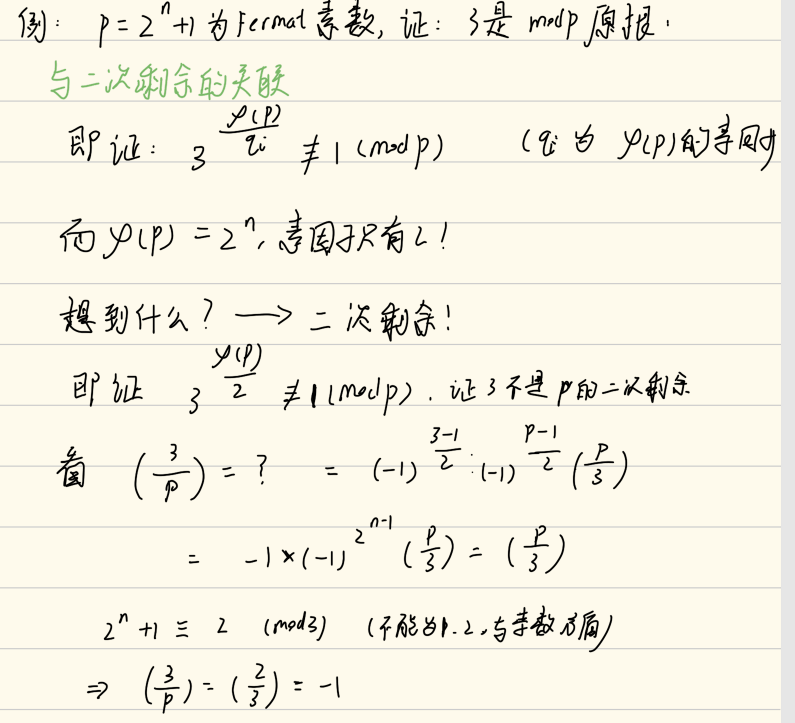 例: p=2^n+1 为 Fermat 素数, 证: 3是 mod p 原根.
与二次剩余的关联
即证: 3^{\frac{φ(p)}{q_i}} ≢ 1 (mod p) (q_i 为 φ(p)的素因子
而 φ(p) = 2^n, 素因子只有2!
想到什么? → 二次剩余!
即证 3^{\frac{φ(p)}{2}} ≢ 1 (mod p). 证3不是p的二次剩余
看 (\frac{3}{p}) = ? = (-1)^{\frac{3-1}{2}·} (-1)^{\frac{p-1}{2}} (\frac{p}{3})
= -1×(-1)^{2^{n-1}} (\frac{p}{3}) = (\frac{p}{3})
2^n+1 ≡ 2 (mod3) (不能为1.2,与素数矛盾)
⇒ (\frac{3}{p}) = (\frac{2}{3}) = -1